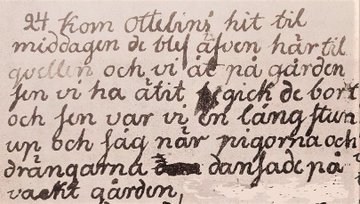 24 kom Ottelins hit til
middagen de blef äfven här til
qvellen och vi åt på gården
sen vi ha ätit gick de bort
och sen var vi en lång stun
up och såg när pigorna och
drängarna dansade på
vackt gården,